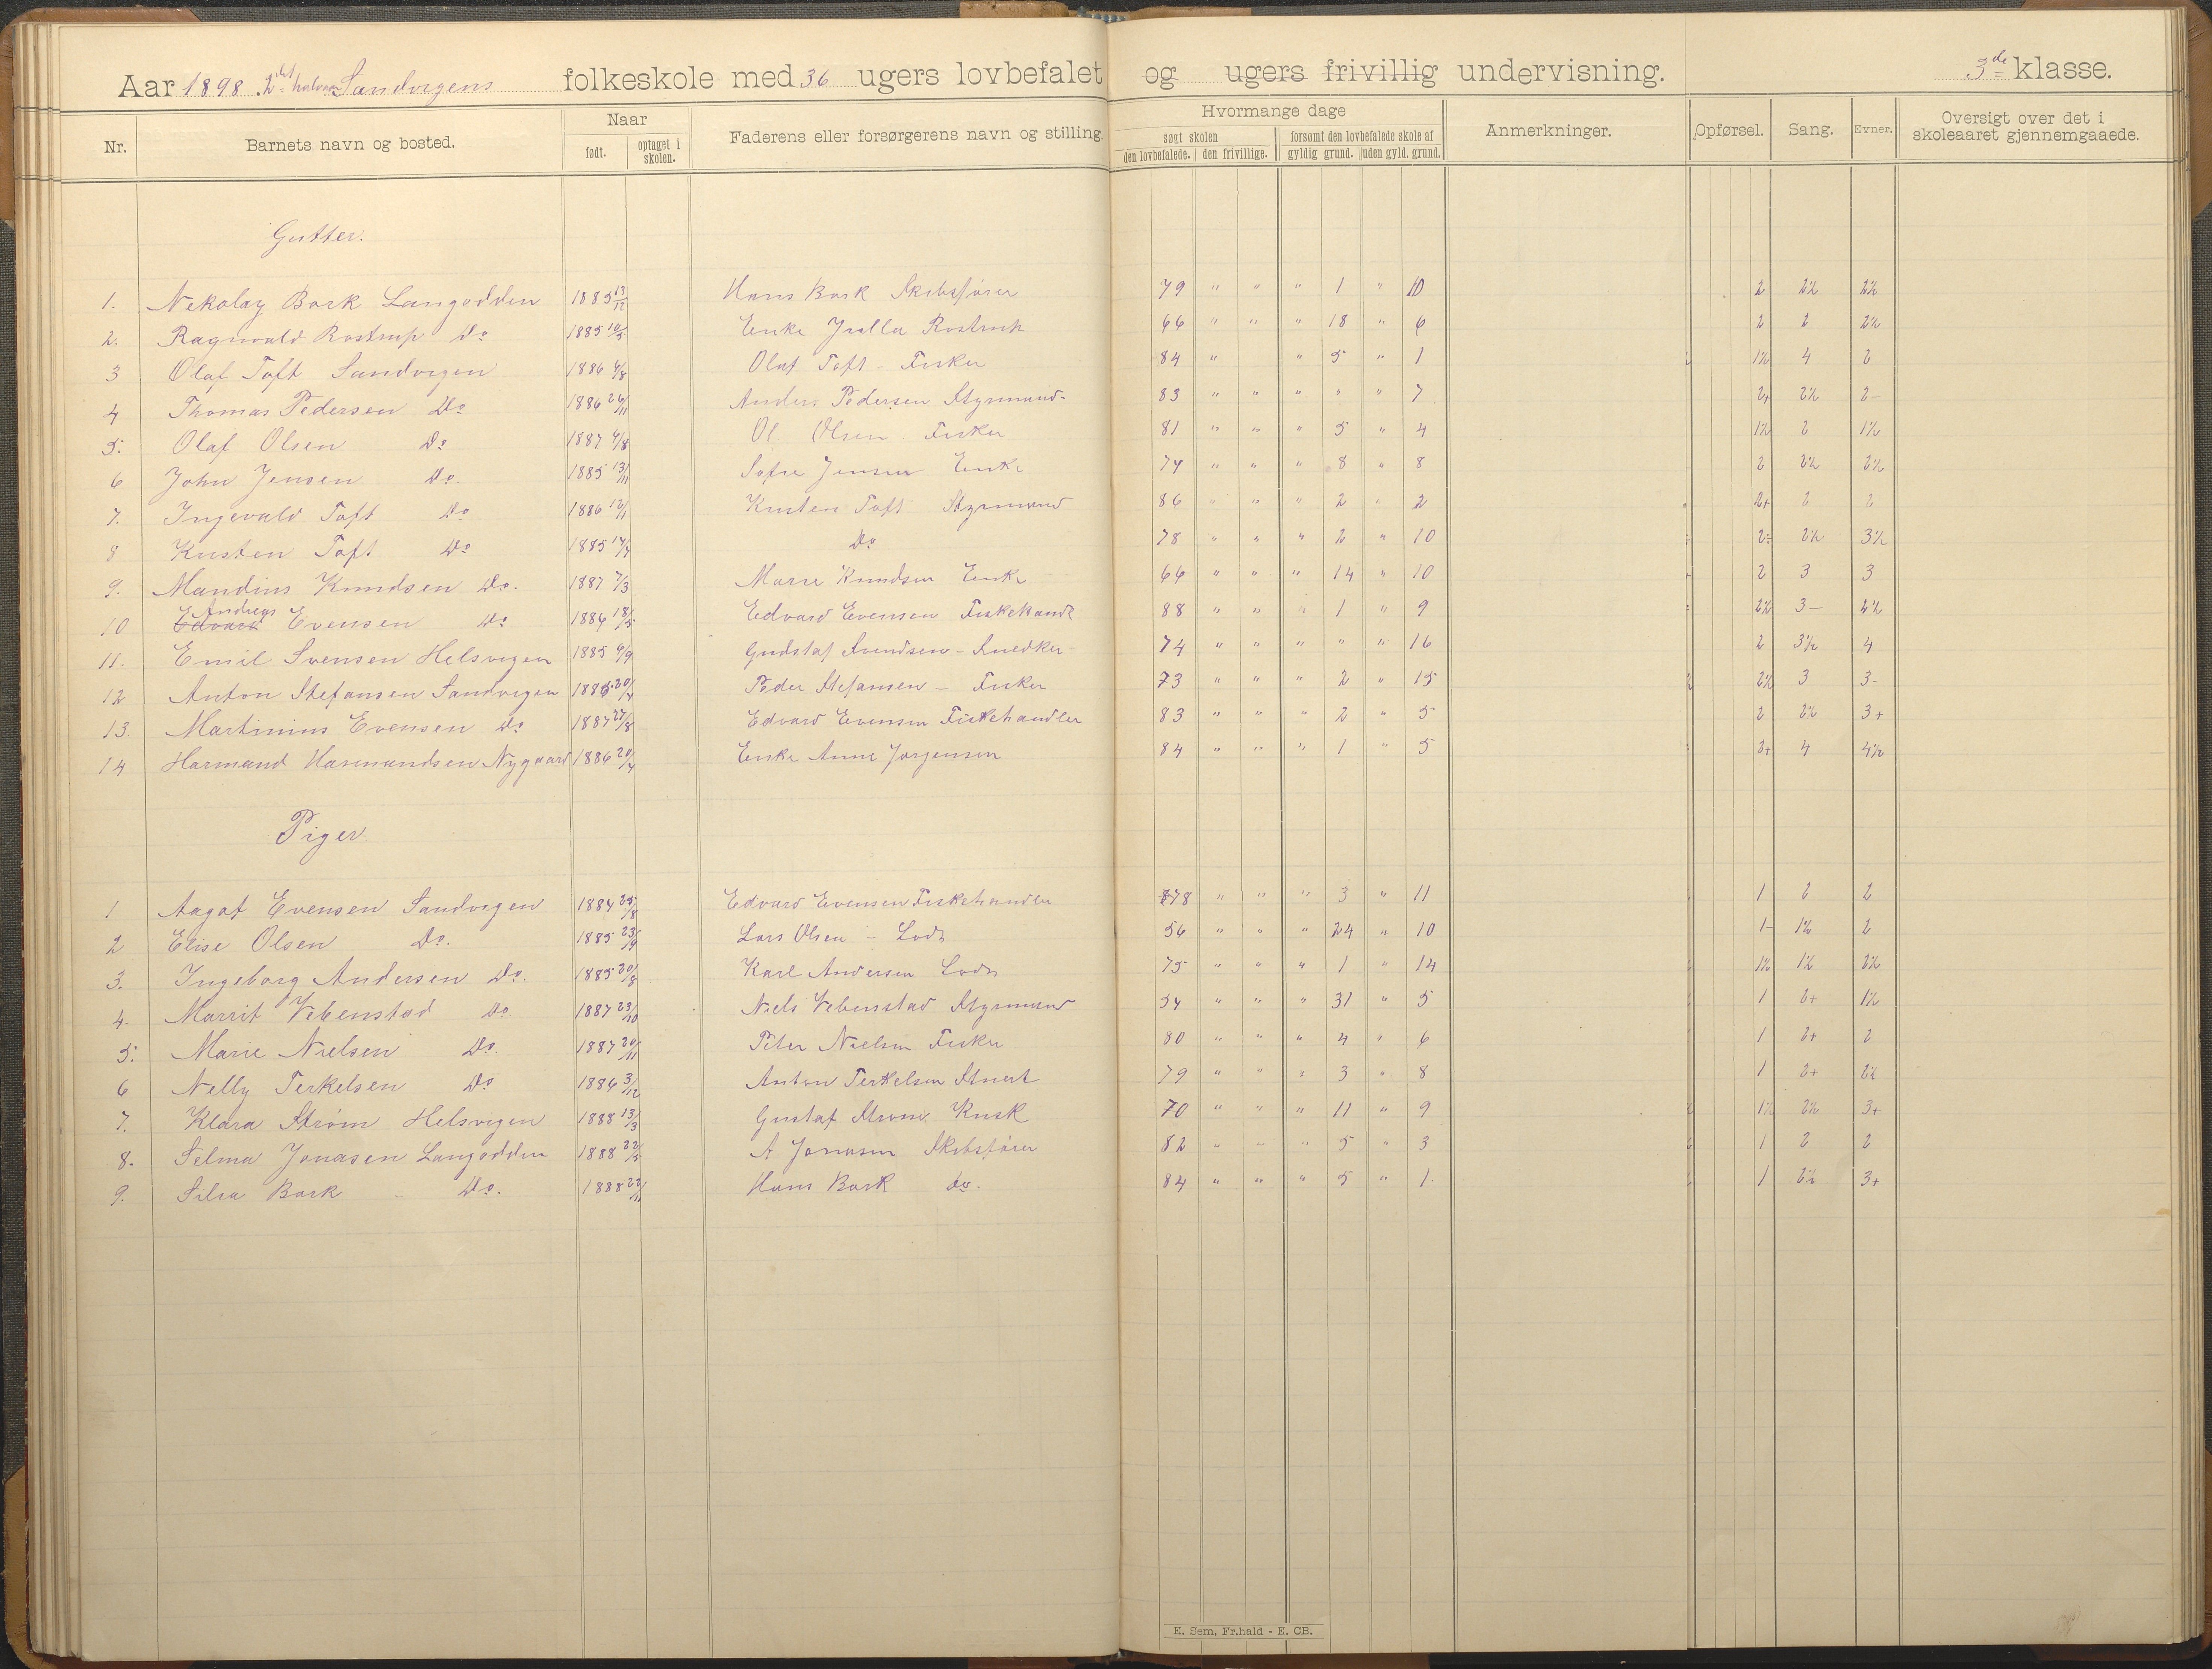 Aar 1898. 2det halvaar Sandvigens folkeskole med 36 ugers lovbefalet og ugers frivillig undervisning. 3de klasse.
Nr. Barnets navn og bosted. Naar født. optaget i skolen. Faderens eller forsørgerens navn og stilling. Hvormange dage søgt skolen den lovbefalede. den frivillige. forsømt den lovbefalede skole af gyldig grund. uden gyld. grund. Anmerkninger. Opførsel. Sang. Evner. Oversigt over det i skoleaaret gjennemgaaede.
Gutter.
1. Nekolay Bork Langodden 1885 13/12 Hans Bork Skibsfører 79 " " " 1 " 10 2 2½ 2½
2. Ragnvald Rostrup Do 1885 10/5 Enke Rostrup 66 " " " 18 " 6 2 2 2½
3 Olaf Toft Sandvigen 1886 4/8 Olaf Toft - Fisker 84 " " 5 " 1 1½ 4 2
4 Thomas Pedersen Do 1886 26/11 Anders Pedersen Styrmand- 83 " " " " " 7 2+ 2½ 2-
5. Olaf Olsen Do 1887 4/8 Ol Olsen Fisker 81 " " " 5 " 4 1½ 2 1½
6 John Jensen Do. 1885 13/11 Sofie Jensen Enke 74 " " " 8 " 8 2 2½ 2½
7. Ingevald Toft Do 1886 12/11 Kristen Toft Styrmand 86 " " " 2 " 2 2+ 2 2
8 Kristen Toft Do 1885 14/7 Do 78 " " " 2 " 10 2 2½ 3½
9. Mandius Knudsen Do. 1887 7/3 Marie Knudsen Enke 66 " " " 14 " 10 2 3 3
10 Edvard Andreas Evensen Do 1886 18/5 Edvard Evensen Fiskehandl 88 " " " 1 " 9 2½ 3- 4½
11. Emil Svensen Helsvigen 1885 4/9 Gudstaf Svendsen - Snedker - 74 " " " " " 16 2 3½ 4
12 Anton Stefansen Sandvigen 1885 20/4 Peder Stefansen - Fisker 73 " " " 2 " 15 2½ 3 3-
13. Martinius Evensen Do 1887 27/8 Edvard Evensen Fiskehandler 83 " " " 2 " 5 2 2½ 3+
14 Harmand Harmandsen Nygaard 1886 20/4 Enke Anne Jørgensen 84 " " " 1 " 5 2+ 4 4½
Piger
1 Aagot Evensen Sandvigen 1884 25/8 Edvard Evensen Fiskehandler 78 " " " 3 " 11 1 2 2
2 Elise Olsen Do. 1885 23/9 Lars Olsen - Lods 56 " " " 24 " 10 1- 1½ 2
3. Ingeborg Andersen Do. 1885 20/8 Karl Andersen Lods 75 " " " 1 " 14 1½ 1½ 2½
4. Marrit Vebenstad Do 1887 23/10 Niels Vebenstad Styrmand 54 " " " 31 " 5 1 2+ 1½
5. Marie Nielsen Do. 1887 20/11 Peter Nielsen Fisker 80 " " " 4 " 6 1 2+ 2
6 Nelly Terkelsen Do 1886 3/12 Anton Terkelsen Stuert 79 " " " 3 " 8 1 2+ 2½
7. Klara Strøm Helsvigen 1888 13/3 Gustaf Strøm Kusk 70 " " " 11 " 9 1½ 2½ 3+
8. Selma Jonasen Langodden 1888 22/5 A Jonasen Skibsfører 82 " " " 5 " 3 1 2 2
9. Silia Bork - Do. 1888 22/11 Hans Bork do. 84 " " " 5 " 1. 1 2½ 3+
E. Sem, Fr.hald - E. CB.